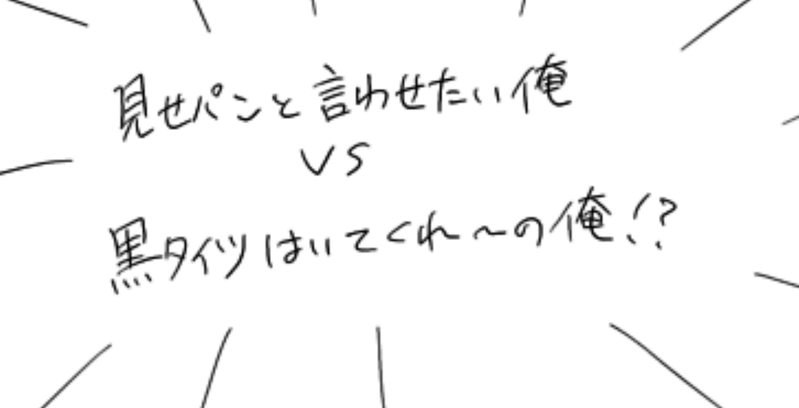 見せパンと言わせたい俺
VS
黒タイツはいてくれ〜の俺!?